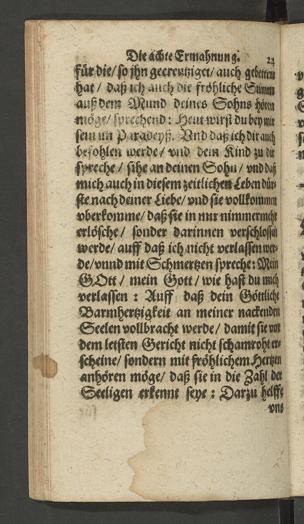 Die achte Ermahnung.
für die/ so jhn gecreutziget/ auch gebetten
hat/ daß ich auch die fröhliche Stimm
auß dem Mund deines Sohns hören
möge/ sprechend: Heut wirst du bey mir
sein im Paradeyß. Vnd daß ich dir auch
befohlen werde/ vnd dem Kind zu dir
spreche/ sihe an deinen Sohn/ vnd daß
mich auch in diesem zeitlichen Leben dür-
ste nach deiner Liebe/ vnd sie vollkommen
vberkomme/ daß sie in mir nimmermehr
erlösche/ sonder darinnen verschlossen
werde/ auff daß ich nicht verlassen wer-
de/ vnnd mit Schmertzen spreche: Mein
GOtt/ mein Gott/ wie hast du mich
verlassen: Auff daß dein Göttliche
Barmhertzigkeit an meiner nackenden
Seelen vollbracht werde/ damit sie vor
dem letsten Gericht nicht schamroht er-
scheine/ sondern mit fröhlichem Hertzen
anhören möge/ daß sie in die Zahl der
Seeligen erkennt seye: Darzu helffe
vns